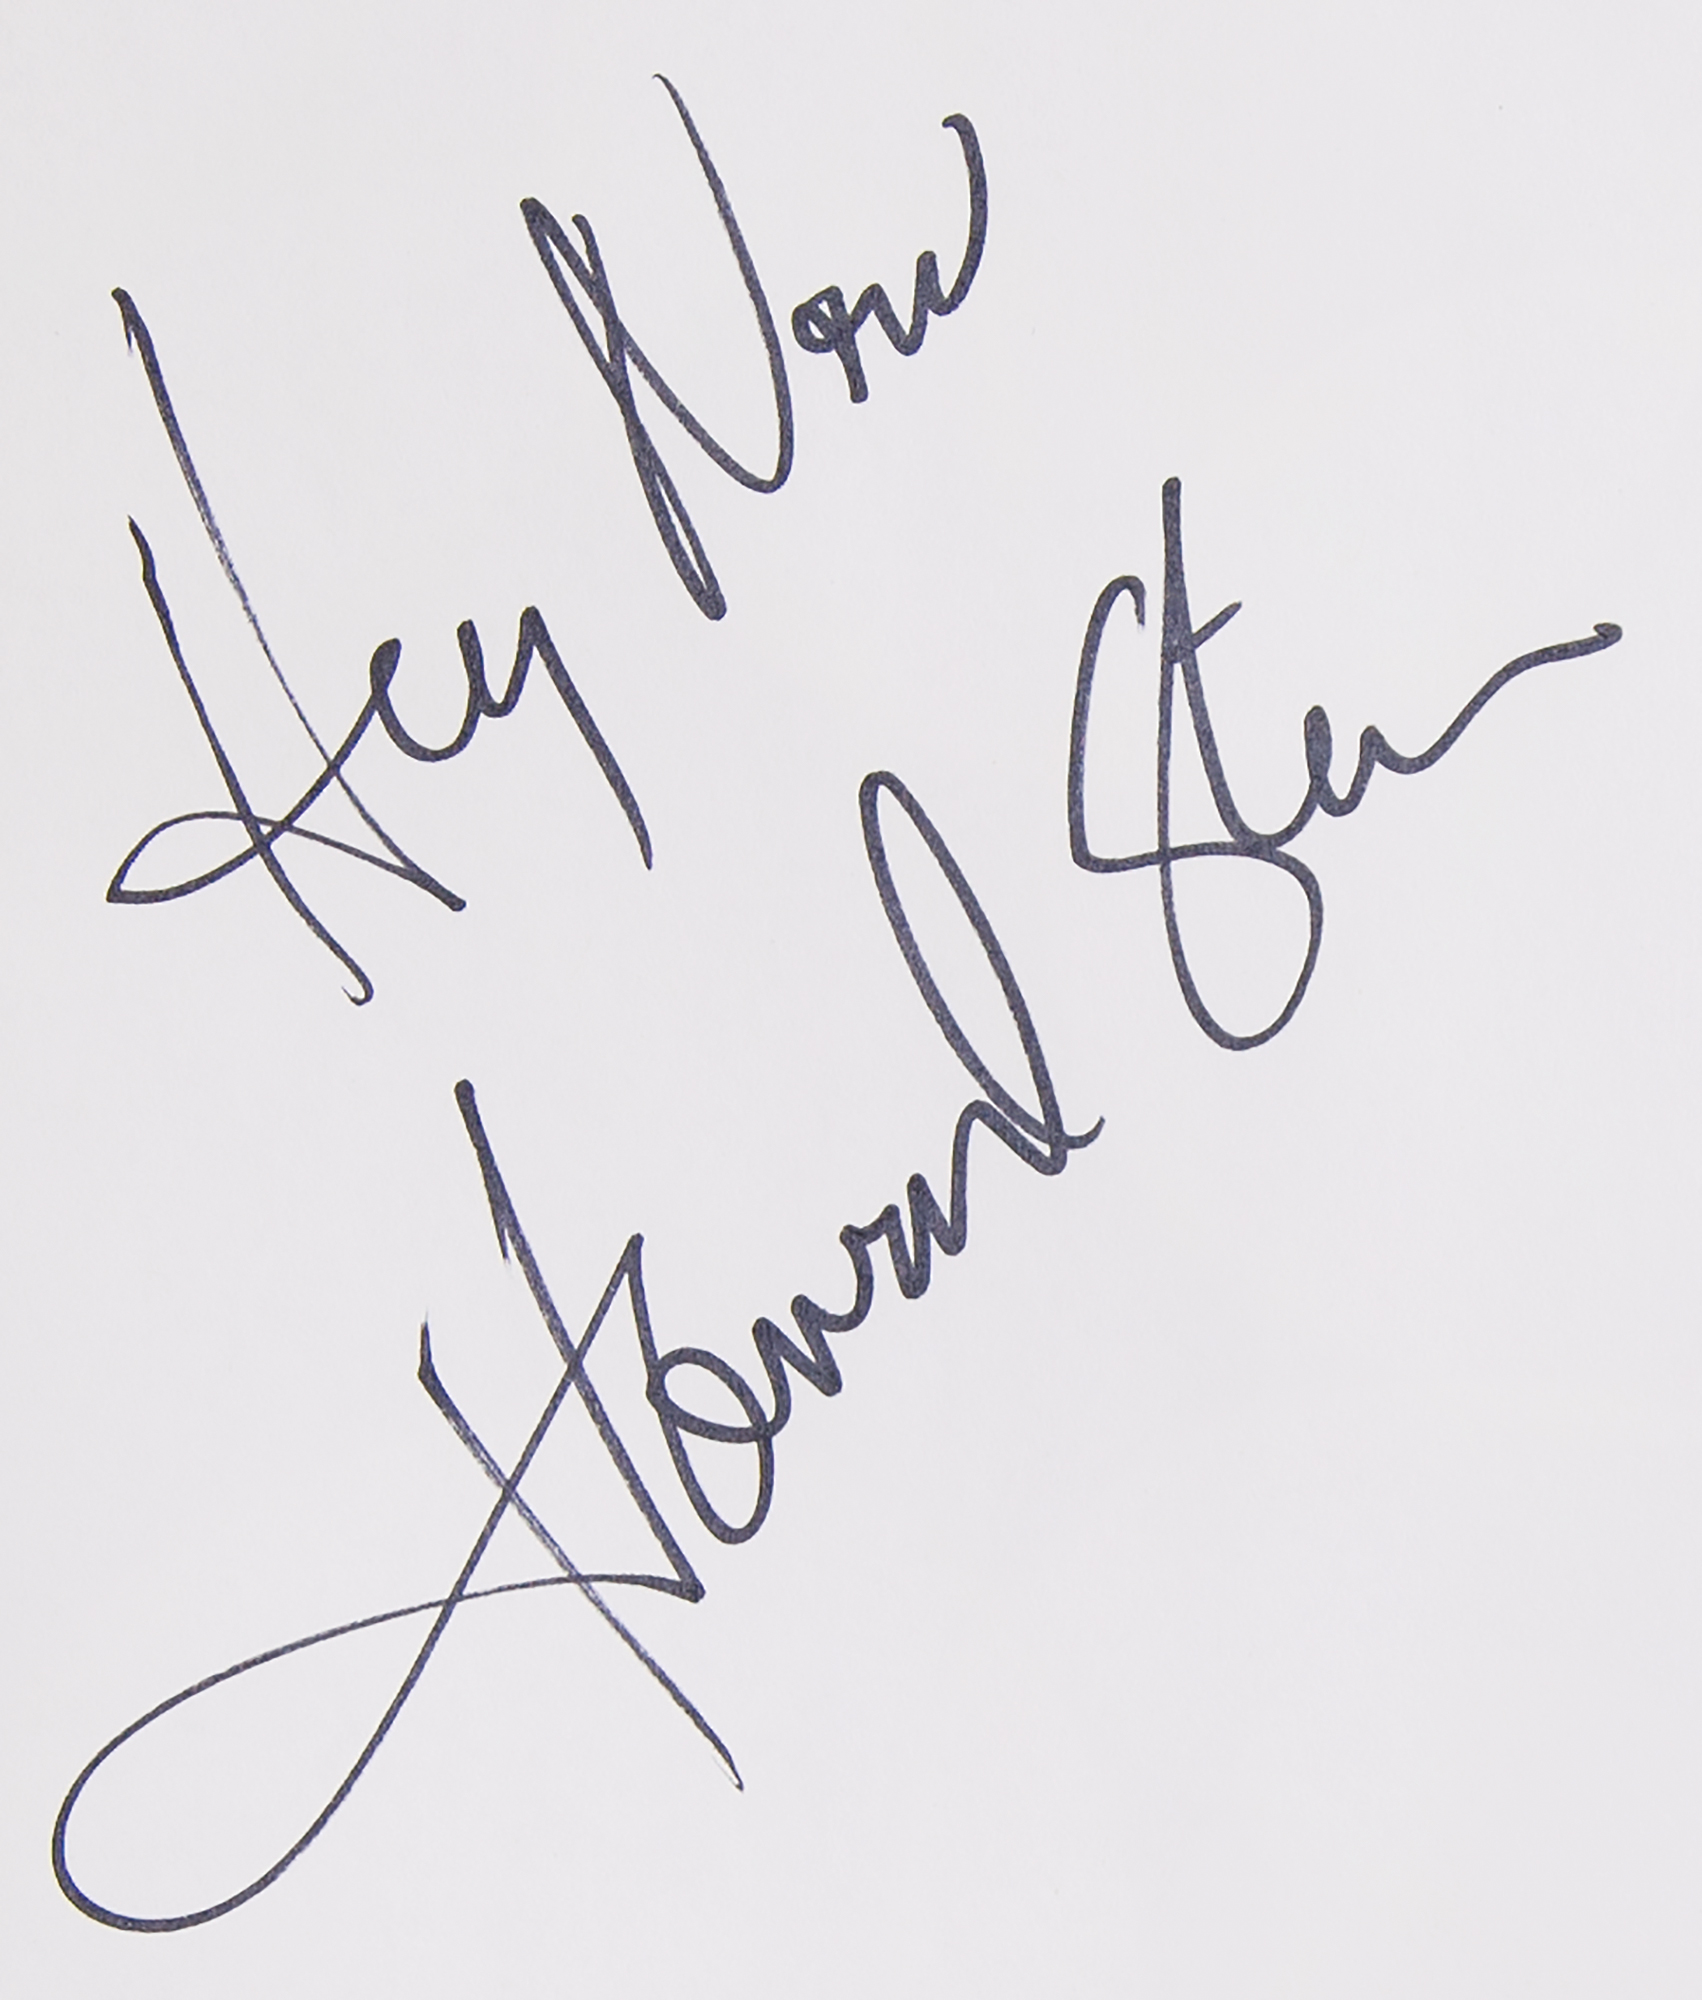 Hey Now
Howard Stern